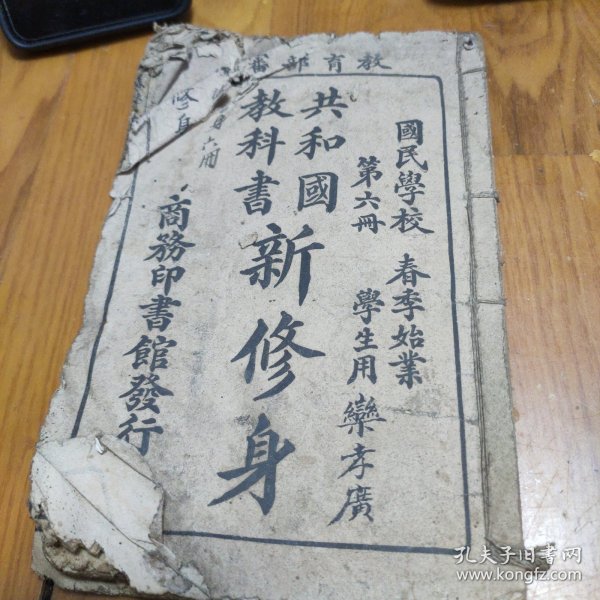 教育部審
國民學校 春季始業
第六冊 學生用 欒孝廣
共和國
教科書
新修身
商務印書館發行
修身
身六冊
孔夫子旧书网
www.kongfz.com